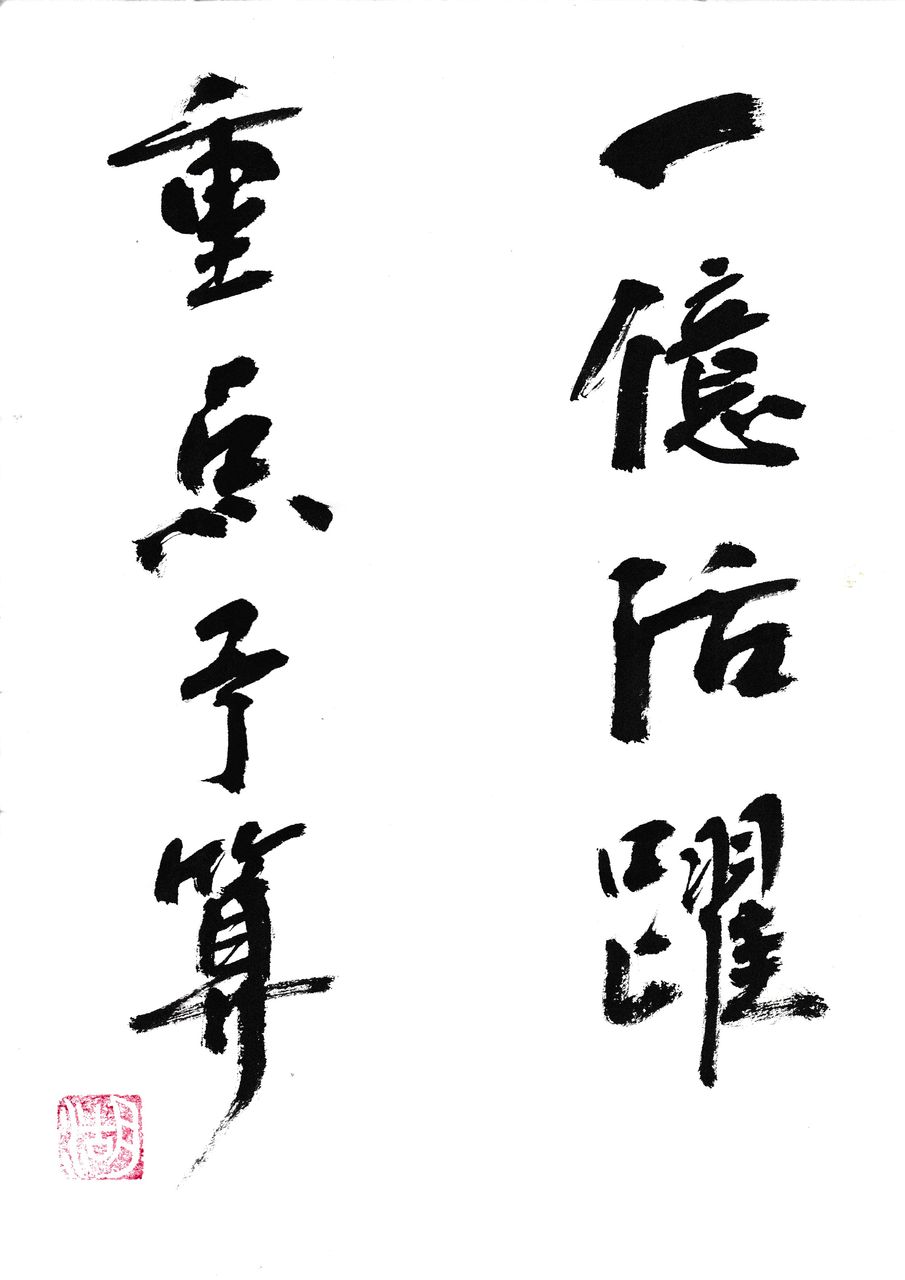 一億活躍
重点予算
湖